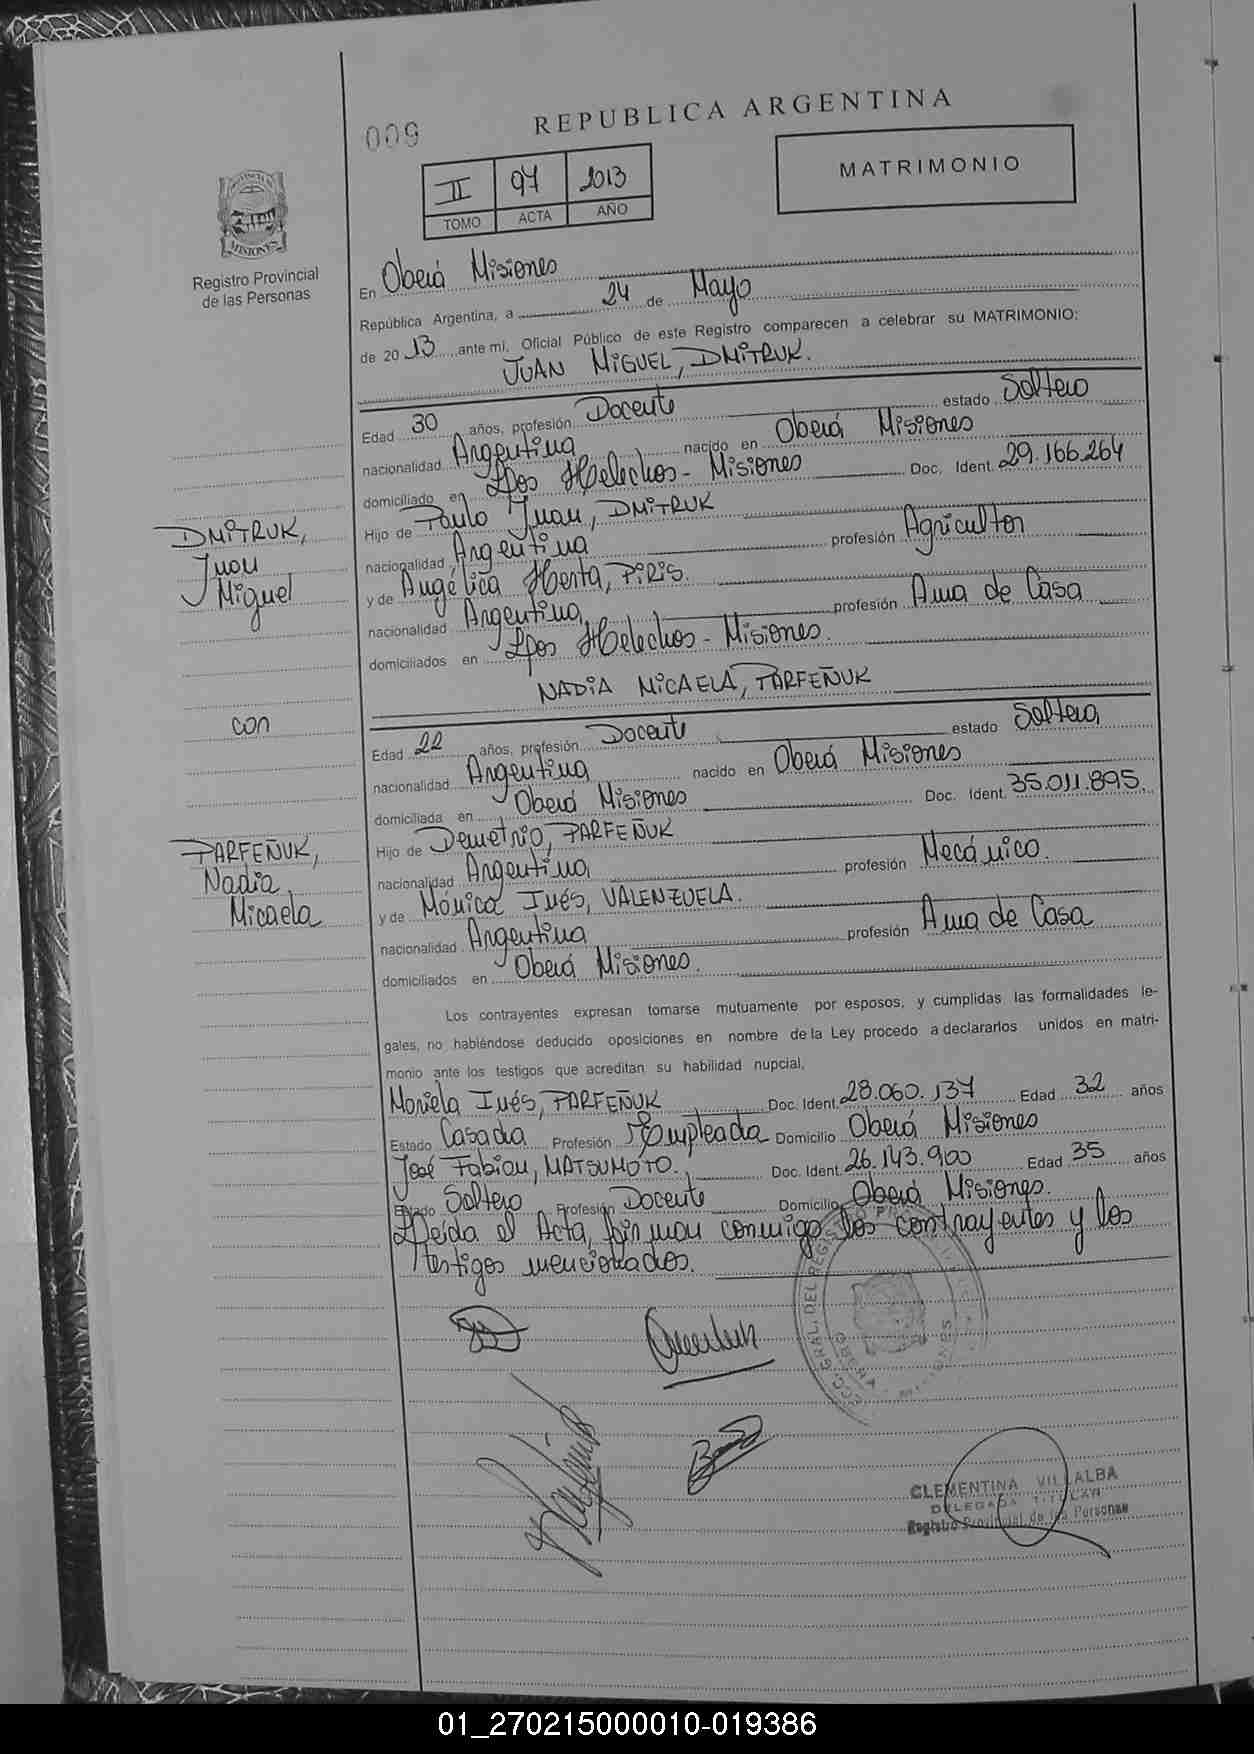 009
REPUBLICA ARGENTINA
MATRIMONIO
II 97 2013
TOMO ACTA AÑO
PROVINCIA DE
MISIONES
Registro Provincial
de las Personas
En Oberá Misiones
República Argentina, a 24 de Mayo
de 2013 ante mi, Oficial Público de este Registro comparecen a celebrar su MATRIMONIO:
JUAN MIGUEL, DMITRUK.
Edad 30 años, profesión Docente estado Soltero
nacionalidad Argentina nacido en Oberá Misiones
domiciliado en Los Helechos - Misiones Doc. Ident. 29.166.264
DMITRUK,
Juan
Miguel
Hijo de Paulo Juan, DMITRUK
nacionalidad Argentina profesión Agricultor
y de Angélica Herta, PIRIS.
nacionalidad Argentina profesión Ama de Casa
domiciliados en Los Helechos - Misiones.
NADIA MICAELA, PARFEÑUK
con
Edad 22 años, profesión Docente estado Soltera
nacionalidad Argentina nacido en Oberá Misiones
domiciliada en Oberá Misiones Doc. Ident. 35.011.895.
PARFEÑUK,
Nadia
Micaela
Hijo de Demetrio, PARFEÑUK
nacionalidad Argentina profesión Mecánico.
y de Mónica Inés, VALENZUELA.
nacionalidad Argentina profesión Ama de Casa
domiciliados en Oberá Misiones.
Los contrayentes expresan tomarse mutuamente por esposos, y cumplidas las formalidades le-
gales, no habiéndose deducido oposiciones en nombre de la Ley procedo a declararlos unidos en matri-
monio ante los testigos que acreditan su habilidad nupcial,
Mariela Inés, PARFEÑUK Doc. Ident. 28.060.137 Edad 32 años
Estado Casada Profesión Empleada Domicilio Oberá Misiones
José Fabian, MATSUMOTO. Doc. Ident. 26.143.900 Edad 35 años
Estado Soltero Profesión Docente Domicilio Oberá Misiones.
Leída el Acta, firman conmigo los contrayentes y los
testigos mencionados.
GRAL. DEL REGISTRO
CLEMENTINA VILLALBA
DELEGADA TITULAR
Registro Provincial de las Personas
01_270215000010-019386